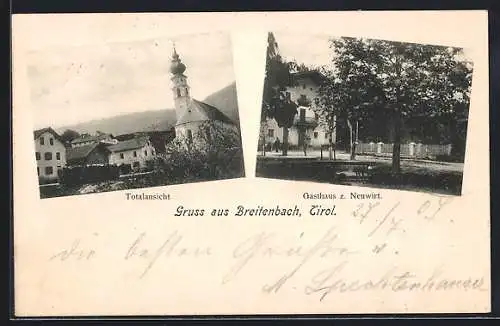 Totalansicht
Gasthaus z. Neuwirt.
Gruss aus Breitenbach, Tirol.
die besten Grüße v.